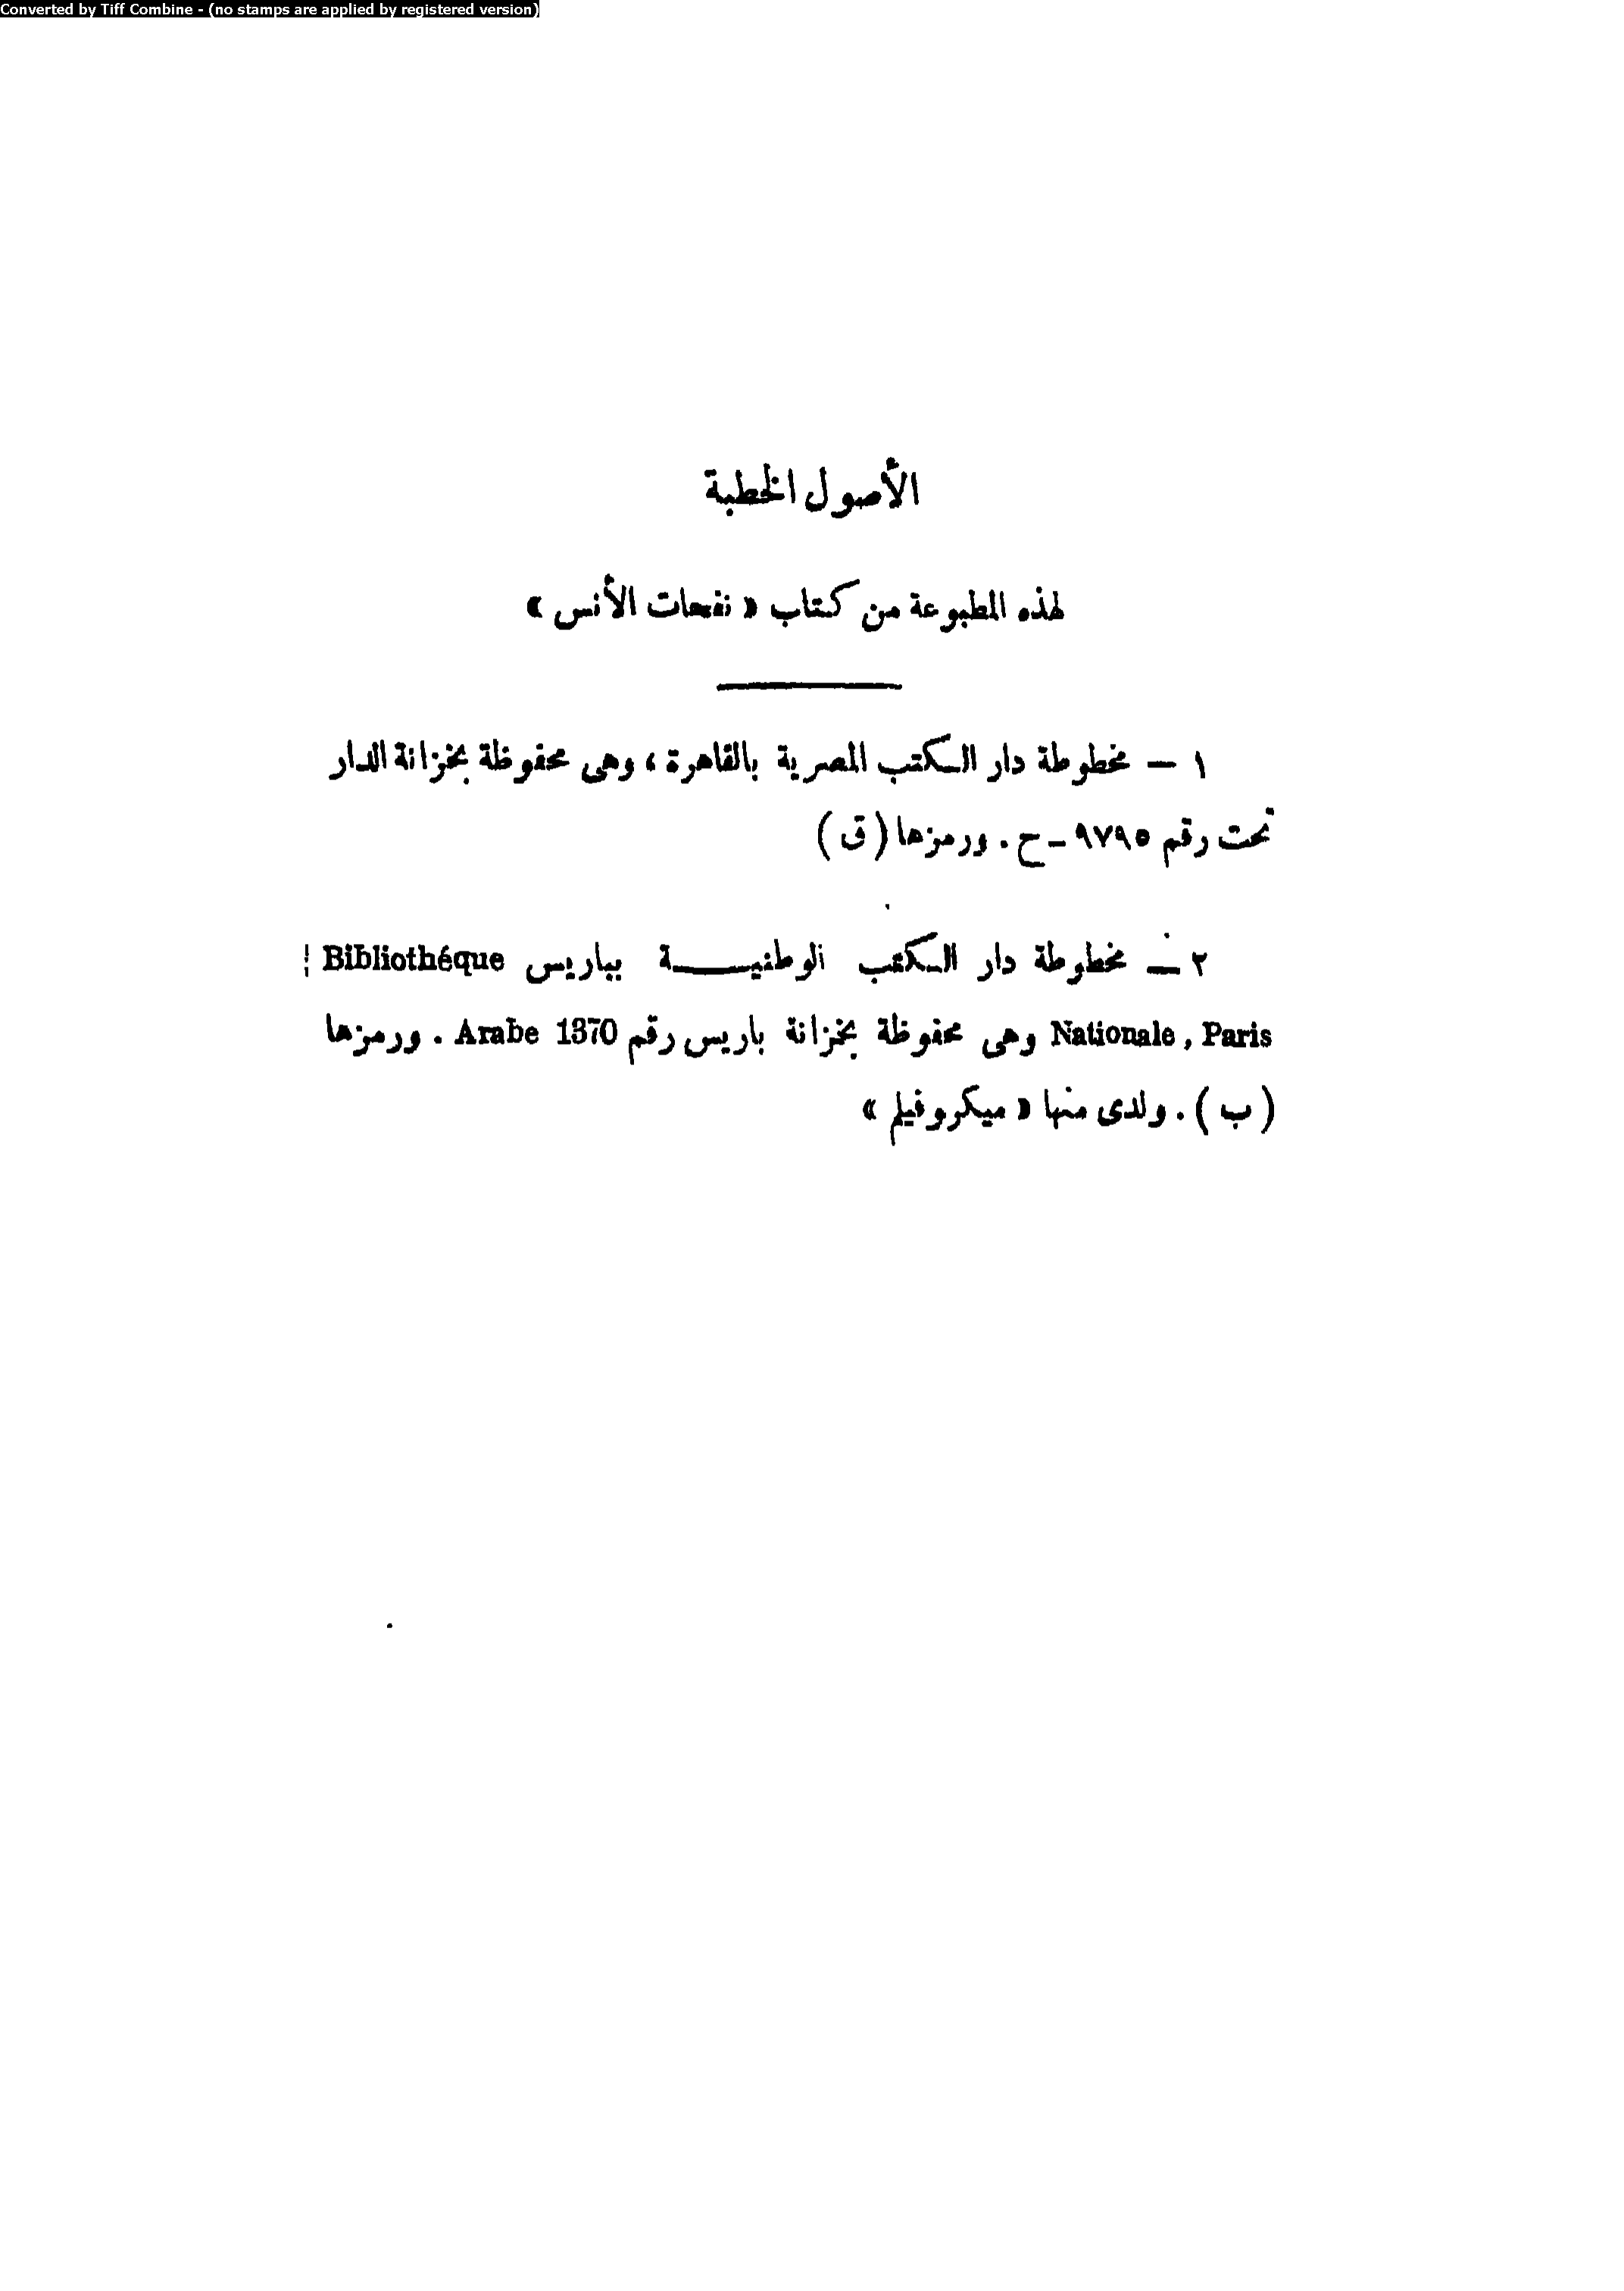 Converted by Tiff Combine - (no stamps are applied by registered version)
الأصول الخطية
لهذه المطبوعة من كتاب « نفحات الأنس »
١ – مخطوطة دار الكتب المصرية بالقاهرة ، وهى محفوظة بخزانة الدار
تحت رقم ٩٧٩٥ – ح . ورمزها ( ق )
٢ – مخطوطة دار الكتب الوطنيـــة بباريس Bibliothéque
Nationale , Paris وهى محفوظة بخزانة باريس رقم Arabe 1370 . ورمزها
( ب ) . ولدى منها « ميكروفيلم »